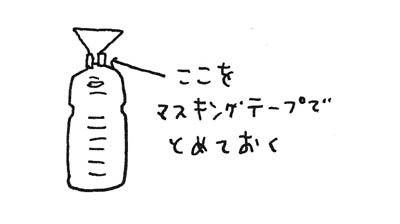 ここを
マスキングテープで
とめておく